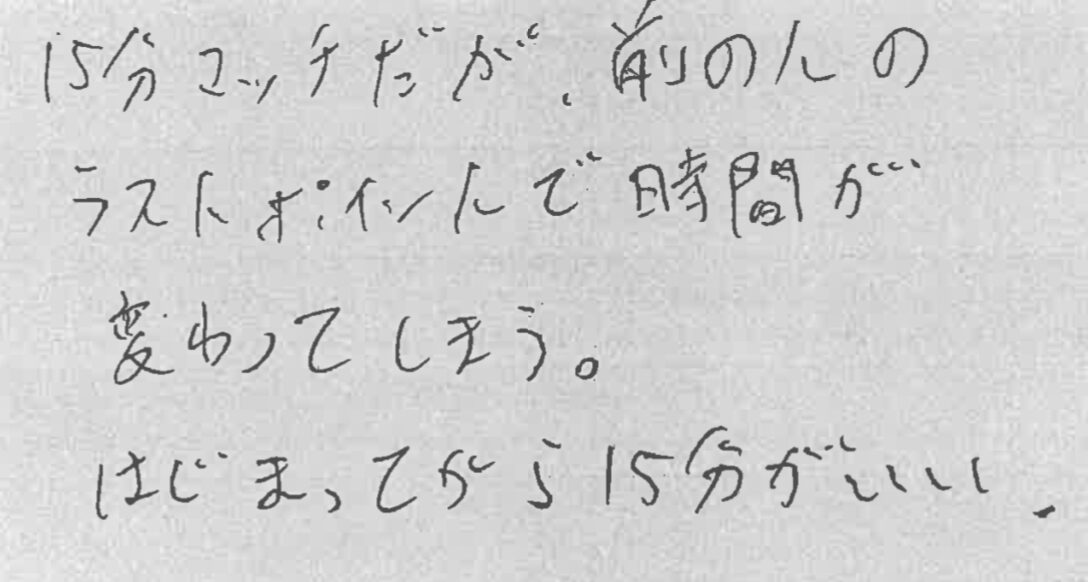 15分マッチだが、前の人の
ラストポイントで時間が
変わってしまう。
はじまってから15分がいい.